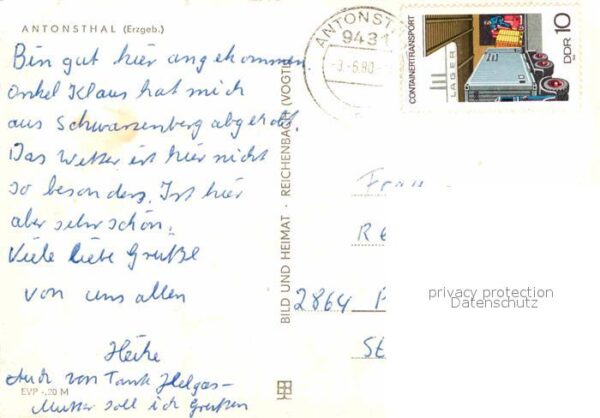 ANTONSTHAL (Erzgeb.)
Bin gut hier angekommen.
Onkel Klaus hat mich
aus Schwarzenberg abgeholt.
Das Wetter ist hier nicht
so besonders. Ist hier
aber sehr schön.
Viele liebe Grüße
von uns allen
Heike
Auch von Tante Helgas-
Mutter soll ich Grüßen
EVP -,20 M
BILD UND HEIMAT · REICHENBACH (VOGTL
ANTONSTH
9431
-3.-6.80.-
CONTAINERTRANSPORT
LAGER
DDR 10
2864 P
privacy protection
Datenschutz